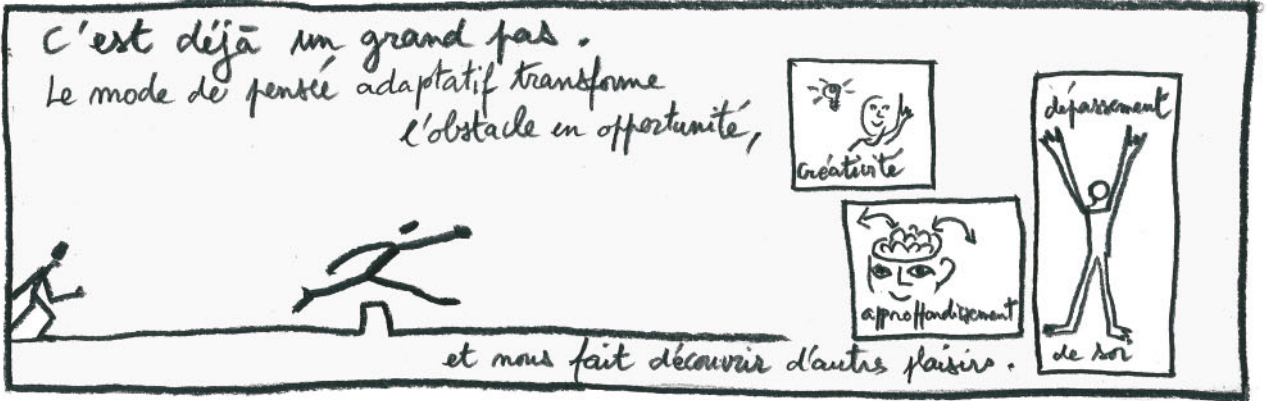 C'est déjà un grand pas.
Le mode de pensée adaptatif transforme
l'obstacle en opportunité,
créativité
approffondissement
dépassement
de soi
et nous fait découvrir d'autres plaisirs.